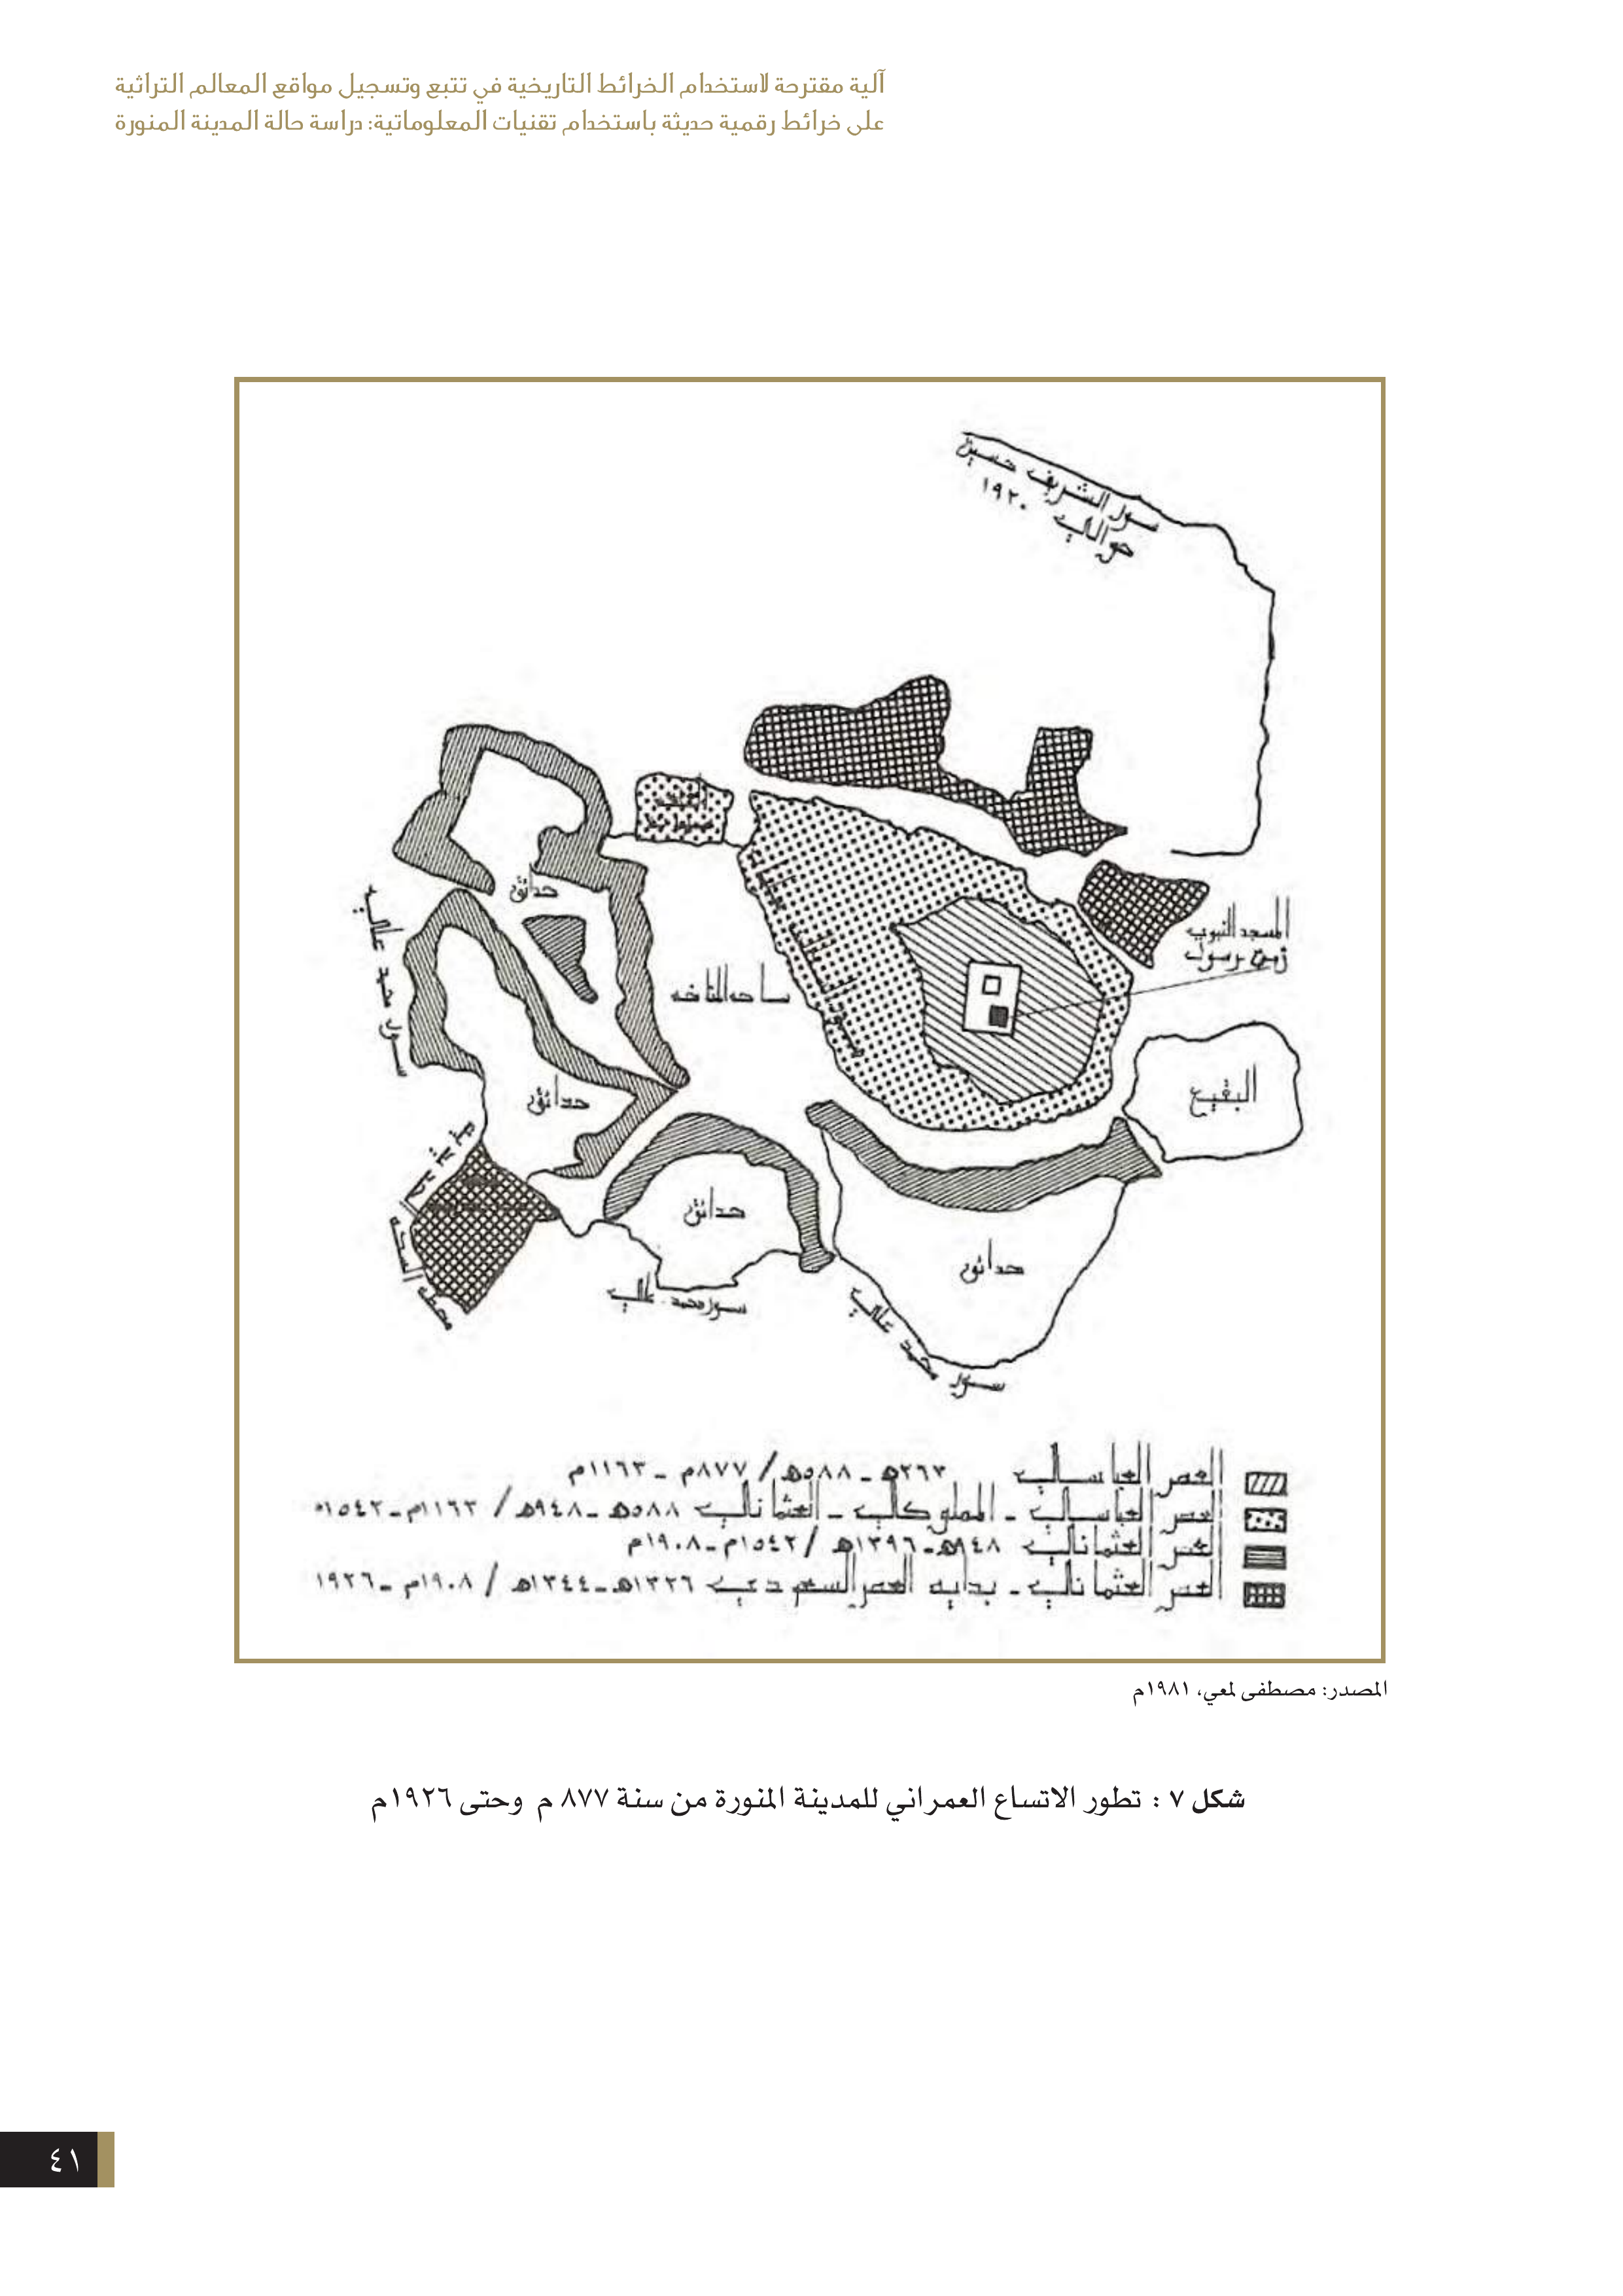 آلية مقترحة لاستخدام الخرائط التاريخية في تتبع وتسجيل مواقع المعالم التراثية
على خرائط رقمية حديثة باستخدام تقنيات المعلوماتية: دراسة حالة المدينة المنورة
سور الشريف حسين
حوالي ١٩٢٠
حدائق
سور محمد علي
ساحه المناخه
المسجد النبوي
زمن رسول
البقيع
حدائق
حدائق
حدائق
سور محمد علي
سور محمد علي
محطه السكه
العصر العباسي ٢٦٣هـ - ٥٨٨هـ / ٨٧٧م - ١١٦٣م
العصر العباسي - المملوكي - العثماني ٥٨٨هـ - ٩٤٨هـ / ١١٦٣م - ١٥٤٢م
العصر العثماني ٩٤٨هـ - ١٣٩٦هـ / ١٥٤٢م - ١٩٠٨م
العصر العثماني - بدايه العصر السعودي ١٣٢٦هـ - ١٣٤٤هـ / ١٩٠٨م - ١٩٢٦
المصدر: مصطفى لمعي، ١٩٨١م
شكل ٧ : تطور الاتساع العمراني للمدينة المنورة من سنة ٨٧٧ م وحتى ١٩٢٦م
٤١